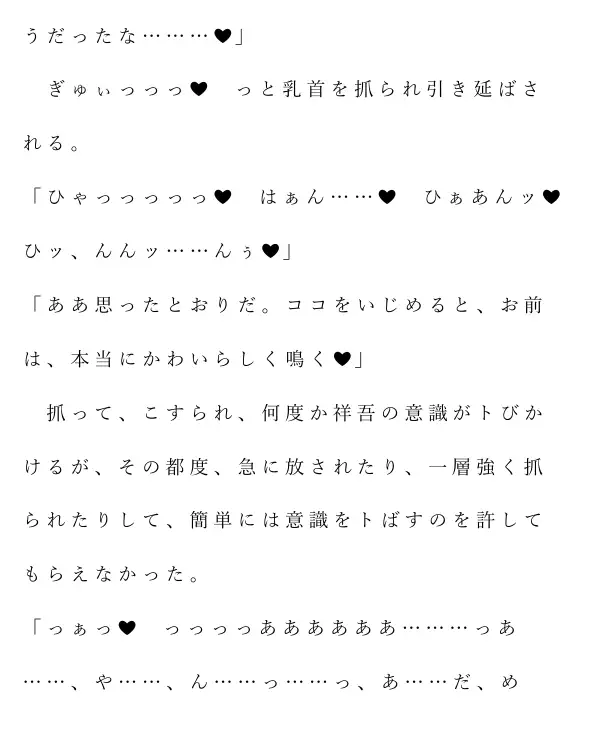 うだったな………♥」
　ぎゅぃっっっ♥　っと乳首を抓られ引き延ばさ
れる。
「ひゃっっっっっ♥　はぁん……♥　ひぁあんッ♥
ひッ、んんッ……んぅ♥」
「ああ思ったとおりだ。ココをいじめると、お前
は、本当にかわいらしく鳴く♥」
　抓って、こすられ、何度か祥吾の意識がトびか
けるが、その都度、急に放されたり、一層強く抓
られたりして、簡単には意識をトばすのを許して
もらえなかった。
「っぁっ♥　っっっっああああああ………っあ
……、や……、ん……っ……っ、あ……だ、め